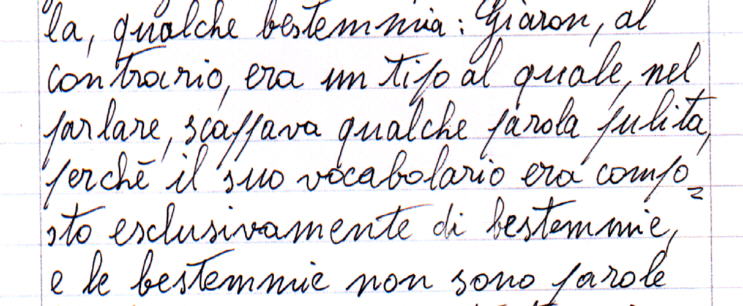 la, qualche bestemmia: Giaron, al
contrario, era un tipo al quale, nel
parlare, scappava qualche parola pulita,
perchè il suo vocabolario era compo=
sto esclusivamente di bestemmie,
e le bestemmie non sono parole